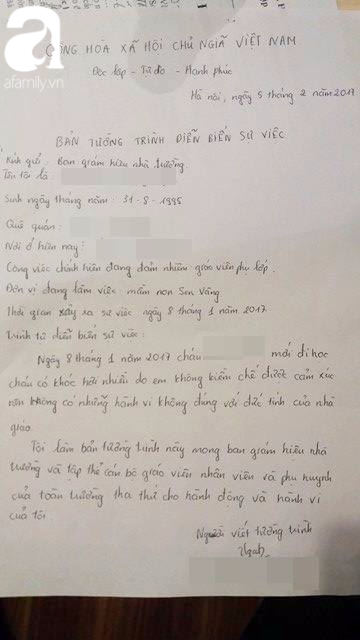 a
afamily.vn
CỘNG HOÀ XÃ HỘI CHỦ NGHĨA VIỆT NAM
Độc lập - Tự do - Hạnh phúc
Hà nội, ngày 5 tháng 2 năm 2017
BẢN TƯỜNG TRÌNH DIỄN BIẾN SỰ VIỆC
Kính gửi: Ban giám hiệu nhà trường.
Tên tôi là:
Sinh ngày tháng năm: 31-8-1995
Quê quán:
Nơi ở hiện nay:
Công việc chính hiện đang đảm nhiệm: giáo viên phụ lớp.
Đơn vị đang làm việc: mầm non Sen Vàng
Thời gian xảy ra sự việc ngày 8 tháng 1 năm 2017
Trình tự diễn biến sự việc:
Ngày 8 tháng 1 năm 2017 cháu mới đi học
cháu có khóc hơi nhiều do em không kiềm chế được cảm xúc
nên không có những hành vi không đúng với đức tính của nhà
giáo
Tôi làm bản tường trình này mong ban giám hiệu nhà
trường và tập thể cán bộ giáo viên nhân viên và phụ huynh
của toàn trường tha thứ cho hành động và hành vi
của tôi
Người viết tường trình